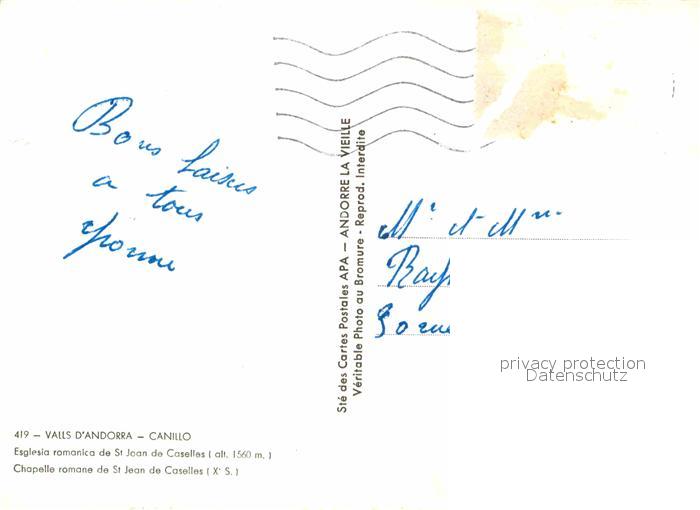 Bons baisers
a tous
Yvonne
Sté des Cartes Postales APA — ANDORRE LA VIEILLE
Véritable Photo au Bromure - Reprod. Interdite
Mr et Mme
Ray
privacy protection
Datenschutz
419 — VALLS D'ANDORRA — CANILLO
Esglesia romanica de St Joan de Caselles ( alt. 1560 m. )
Chapelle romane de St Jean de Caselles ( X° S. )